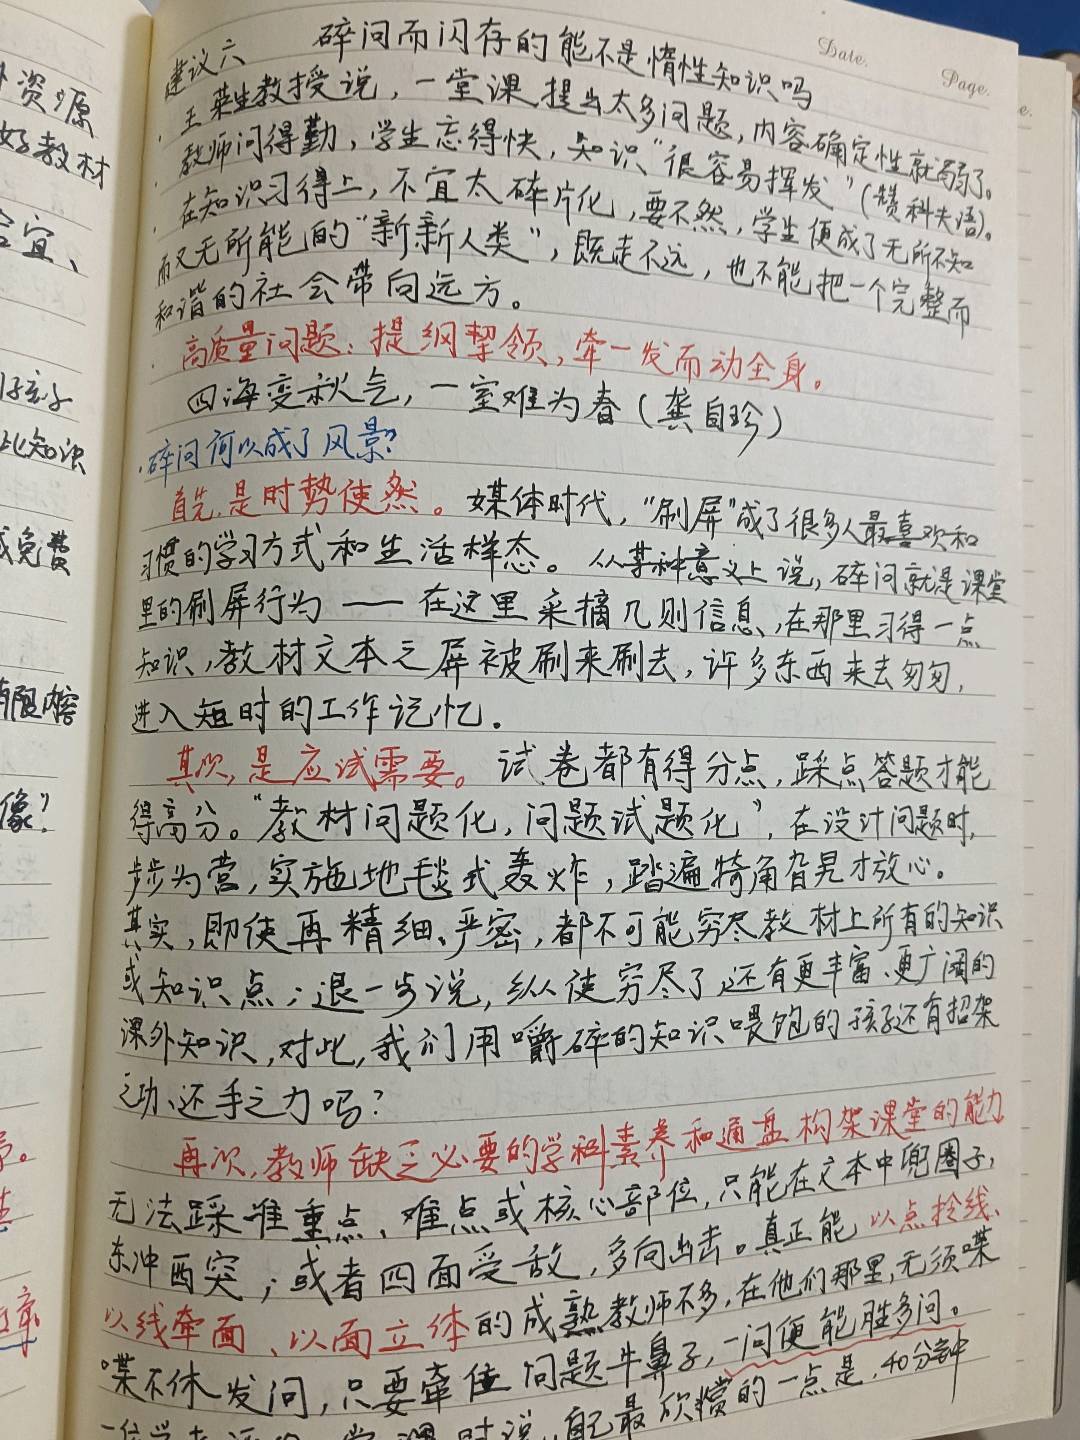 Date.
Page.
建议六 碎问而闪存的能不是惰性知识吗
· 王荣生教授说，一堂课提出太多问题，内容确定性就弱了。
· 教师问得勤，学生忘得快，知识“很容易挥发”（赞科夫语）。
· 在知识习得上，不宜太碎片化，要不然，学生便成了无所不知
而又无所能的“新新人类”，既走不远，也不能把一个完整而
和谐的社会带向远方。
· 高质量问题：提纲挈领，牵一发而动全身。
四海变秋气，一室难为春（龚自珍）
·碎问何以成了风景？
首先，是时势使然。媒体时代，“刷屏”成了很多人最喜欢和
习惯的学习方式和生活样态。从某种意义上说，碎问就是课堂
里的刷屏行为——在这里采摘几则信息，在那里习得一点
知识，教材文本之屏被刷来刷去，许多东西来去匆匆，
进入短时的工作记忆。
其次，是应试需要。试卷都有得分点，踩点答题才能
得高分。“教材问题化，问题试题化”，在设计问题时，
步步为营，实施地毯式轰炸，踏遍犄角旮旯才放心。
其实，即使再精细、严密，都不可能穷尽教材上所有的知识
或知识点；退一步说，纵使穷尽了，还有更丰富、更广阔的
课外知识，对此，我们用嚼碎的知识喂饱的孩子还有招架
之功、还手之力吗？
再次，教师缺乏必要的学科素养和通盘构架课堂的能力
无法踩准重点、难点或核心部位，只能在文本中兜圈子，
东冲西突；或者四面受敌，多向出击。真正能以点拎线、
以线牵面、以面立体的成熟教师不多，在他们那里，无须喋
喋不休发问，只要牵住问题牛鼻子，一问便能胜多问。
时说，自己最欣赏的一点是，40分钟
外资源
好教材
宜、
知识
免费
有限内容
像？